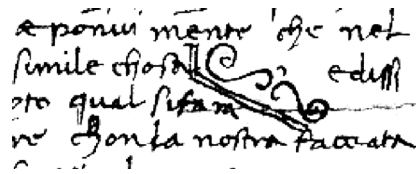 e ponivi mente che nel
simile chosa edissi
oto qual si fam
re chon la nostra faccata